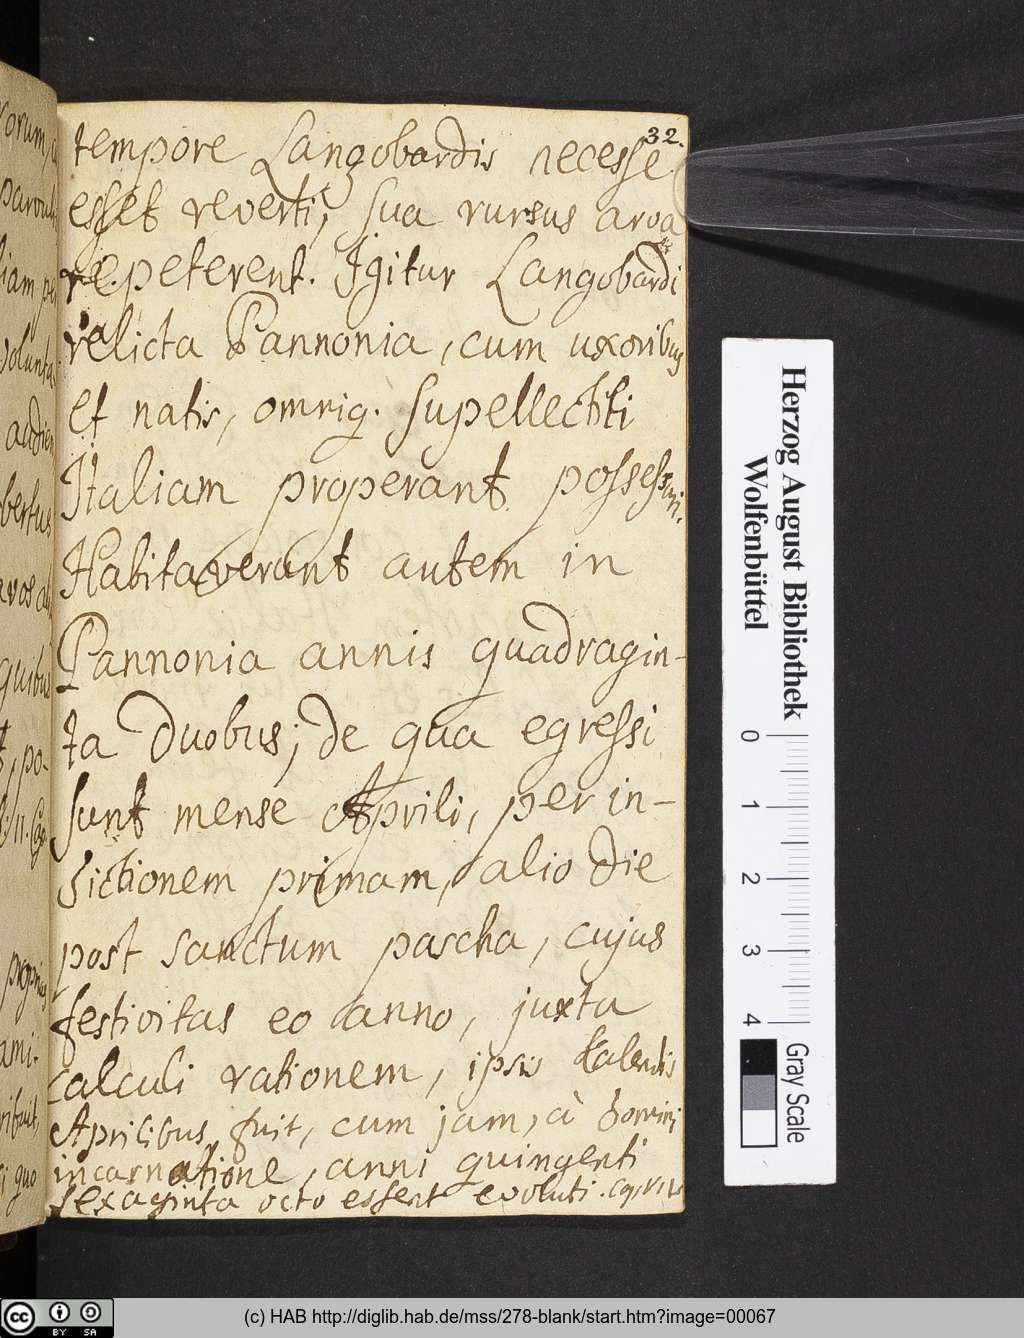 32.
tempore Langobardis necesse
esset reverti, sua rursus arva
repeterent. Igitur Langobardi
relicta Pannonia, cum uxoribus
et natis, omniq. supellectili
Italiam properant possessuri.
Habitaverant autem in
Pannonia annis quadragin-
ta duobus; de qua egressi
sunt mense Aprili, per in-
dictionem primam, alio die
post sanctum pascha, cujus
festivitas eo anno, juxta
calculi rationem, ipsis Kalendis
Aprilibus fuit, cum jam, à Domini
incarnatione, anni quingenti
sexaginta octo essent evoluti.
orum,
parvul
liam pe
volunta
audien
bertus
avos
quibus
po-
propius
ami-
ribuit,
quo
Herzog August Bibliothek
Wolfenbüttel
0 1 2 3 4
Gray Scale
cc BY SA
(c) HAB http://diglib.hab.de/mss/278-blank/start.htm?image=00067